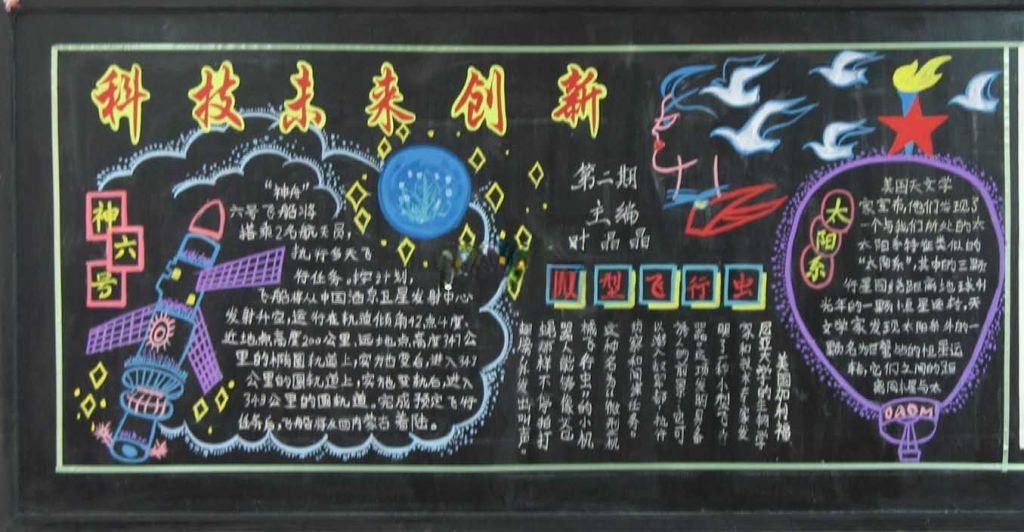 科技未来创新
第二期
主编
叶晶晶
神六号
“神舟”
六号飞船将
搭乘2名航天员,
执行多天飞
行任务。按计划,
飞船将从中国酒泉卫星发射中心
发射升空,运行在轨道倾角42点4度,
近地点高度200公里,远地点高度347公
里的椭圆轨道上,实施变轨后,进入343
公里的圆轨道上,实施变轨后,进入
343公里的圆轨道。完成预定飞行
任务后,飞船将在内蒙古着陆。
型飞行虫
美国加利福
尼亚大学的生物学
家和技术专家发
明了一种小型飞行
敌人的
以潜入敌军
侦察和
这种名为“微型机
械飞行虫”的小机
器人能够像
蝇那样不停拍打
翅膀并发出叫声。
太阳系
美国天文学
家宣布,他们发现了
一个与我们所处的太
太阳系特征类似的
“太阳系”,其中的三颗
行星围绕距离地球41
光年的一颗恒星运转,天
文学家发现太阳系外的一
颗名为巨蟹的恒星运
转,它们之间的距
离同